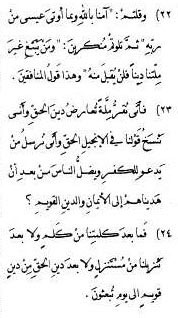 (٢٢) وقلتم: "آمنا بالله وما أوتي عيسى من
ربه" ثم تلوذ منكرين: "ومن يبتغ غير
ملتنا دينا فلن يقبل منه" وهذا قول المنافقين.
(٢٣) فأنى تقر ملة تعارض دين الحق وأنى
ننسخ قولنا في الإنجيل الحق وأنى نرسل من
يدعو للكفر ويضل الناس من بعد أن
هديناهم إلى الإيمان والدين القويم؟
(٢٤) فما بعد كلمتنا من كلم ولا بعد
تنزيلنا من مستنزل ولا بعد دين الحق من دين
قويم إلى يوم تبعثون.